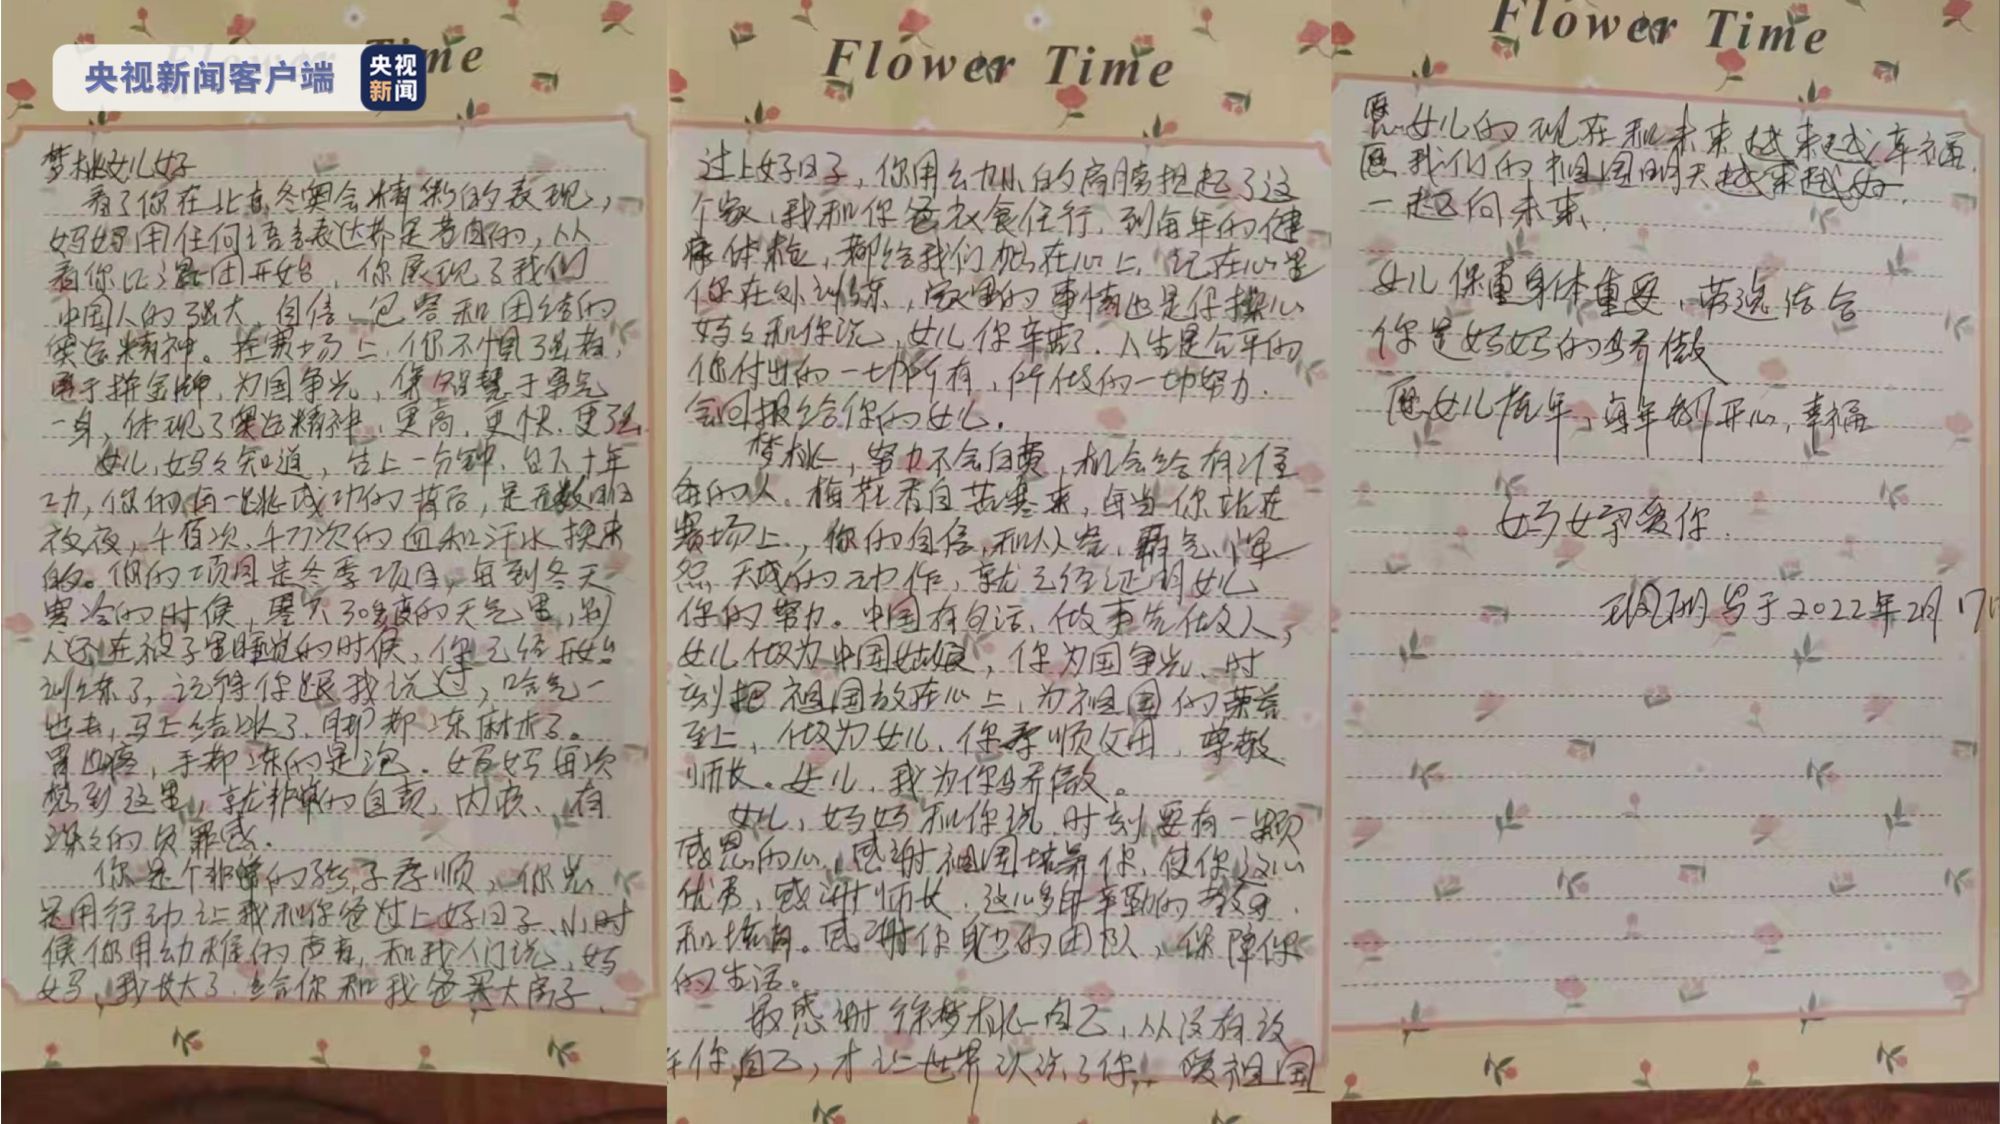 央视新闻客户端
央视
新闻
me
梦桃女儿好
看了你在北京冬奥会精彩的表现，
妈妈用任何语言表达都是苍白的，从
看你比混团开始，你展现了我们
中国人的强大、自信、包容和团结的
奥运精神。在赛场上，你不惧强者，
勇于拼金牌，为国争光，集智慧于勇气
一身，体现了奥运精神，更高，更快，更强
女儿，妈妈知道，台上一分钟，台下十年
功，你的每一跳成功的背后，是无数日日
夜夜，千百次、千万次的血和汗水换来
的。你的项目是冬季项目，每到冬天
寒冷的时候，零下30多度的天气里，别
人还在被子里睡觉的时候，你已经开始
训练了，记得你跟我说过，哈气一
出去，马上结冰了，脚都冻麻木了。
胃口疼，手都冻的是泡。妈妈每次
想到这里，就非常的自责，内疚、有
深深的负罪感。
你是个非常的孩子孝顺，你总
是用行动让我和你爸过上好日子、小时
候你用幼稚的声音，和我们说，妈
妈，我长大了，给你和我爸买大房子，
Flower Time
过上好日子，你用幼小的肩膀担起了这
个家，我和你爸衣食住行，到每年的健
康体检，都给我们放在心上，记在心里
你在外训练，家里的事情也是你操心
妈妈和你说，女儿你辛苦了，人生是公平的
你付出的一切所有，所做的一切努力，
会回报给你的女儿。
梦桃，努力不会白费，机会给有准
备的人。梅花香自苦寒来，每当你站在
赛场上，你的自信，和从容，霸气、浑
然天成的动作，就已经证明女儿
你的努力。中国有句话，做事先做人，
女儿做为中国姑娘，你为国争光、时
刻把祖国放在心上，为祖国的荣誉
至上，做为女儿，你孝顺父母，尊敬
师长。女儿，我为你骄傲。
女儿，妈妈和你说，时刻要有一颗
感恩的心，感谢祖国培养你，使你这么
优秀，感谢师长，这么多年辛勤的教育，
和培育。感谢你身边的团队，保障你
的生活。
最感谢徐梦桃自己，从没有放
弃你自己，才让世界认识了你，愿祖国
Flower Time
愿女儿的现在和未来越来越幸福，
愿我们的祖国明天越来越好，
一起向未来，
女儿保重身体重要，劳逸结合
你是妈妈的骄傲
愿女儿虎年，每年都开心，幸福
妈妈爱你．
写于2022年2月17日